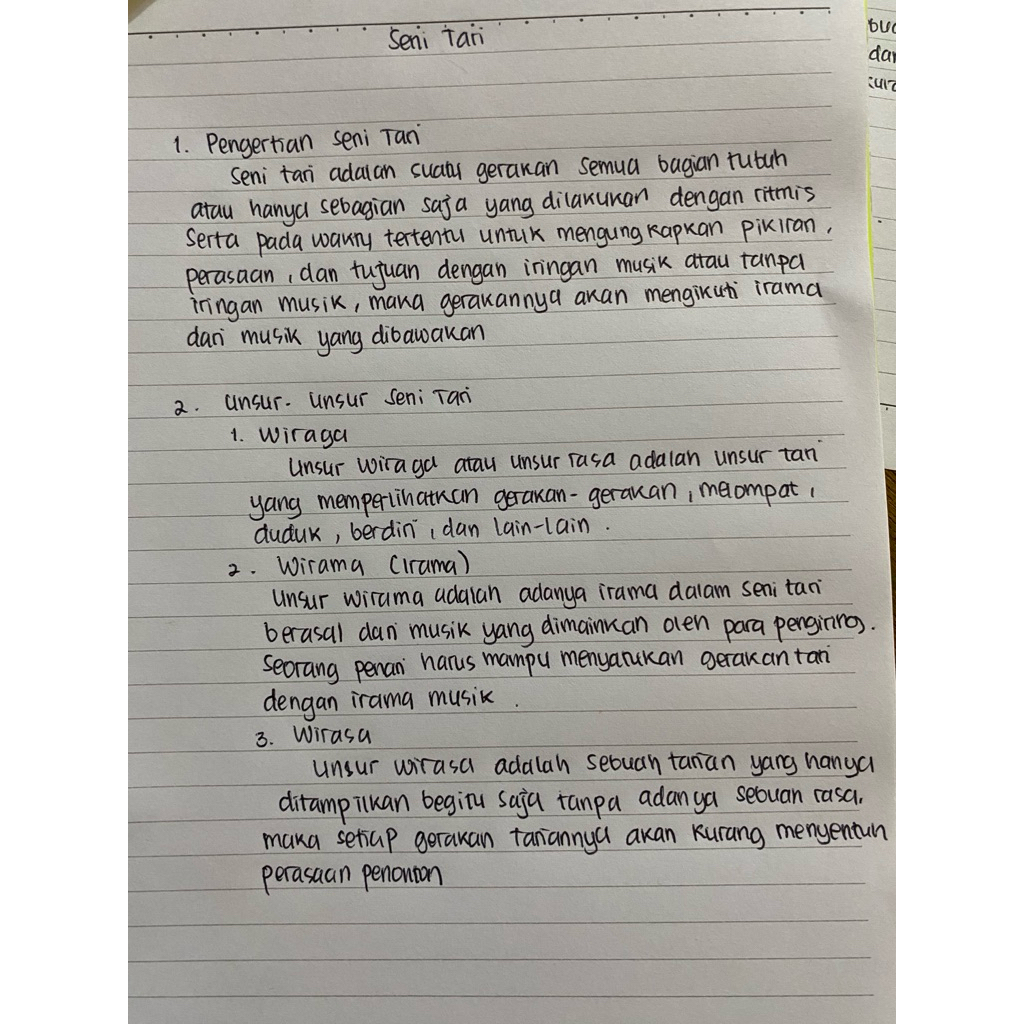 Seni Tari
1. Pengertian Seni Tari
Seni tari adalah suatu gerakan semua bagian tubuh
atau hanya sebagian saja yang dilakukan dengan ritmis
serta pada waktu tertentu untuk mengungkapkan pikiran,
perasaan, dan tujuan dengan iringan musik atau tanpa
iringan musik, maka gerakannya akan mengikuti irama
dari musik yang dibawakan
2. Unsur-Unsur Seni Tari
1. Wiraga
Unsur wiraga atau unsur rasa adalah unsur tari
yang memperlihatkan gerakan-gerakan, melompat,
duduk, berdiri, dan lain-lain.
2. Wirama (Irama)
Unsur wirama adalah adanya irama dalam seni tari
berasal dari musik yang dimainkan oleh para pengiring.
Seorang penari harus mampu menyatukan gerakan tari
dengan irama musik.
3. Wirasa
Unsur wirasa adalah sebuah tarian yang hanya
ditampilkan begitu saja tanpa adanya sebuah rasa.
maka setiap gerakan tariannya akan kurang menyentuh
perasaan penonton